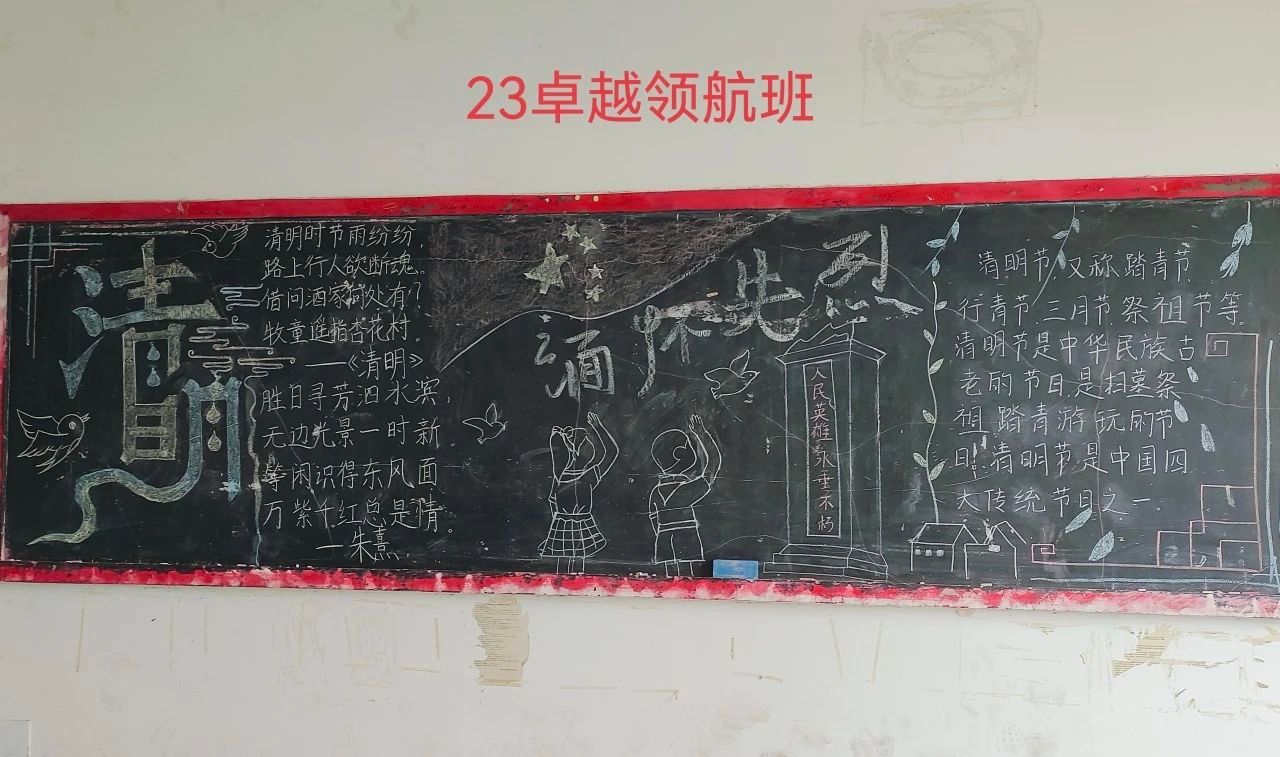 23卓越领航班
清明
清明时节雨纷纷,
路上行人欲断魂。
借问酒家何处有?
牧童遥指杏花村。
——《清明》
胜日寻芳泗水滨,
无边光景一时新
等闲识得东风面
万紫千红总是情。
—朱熹.
缅怀先烈
人民英雄永垂不朽
清明节,又称踏青节
行青节 三月节 祭祖节等。
清明节是中华民族古
老的节日,是扫墓祭
祖 踏青游玩的节
日.清明节是中国四
大传统节日之一.